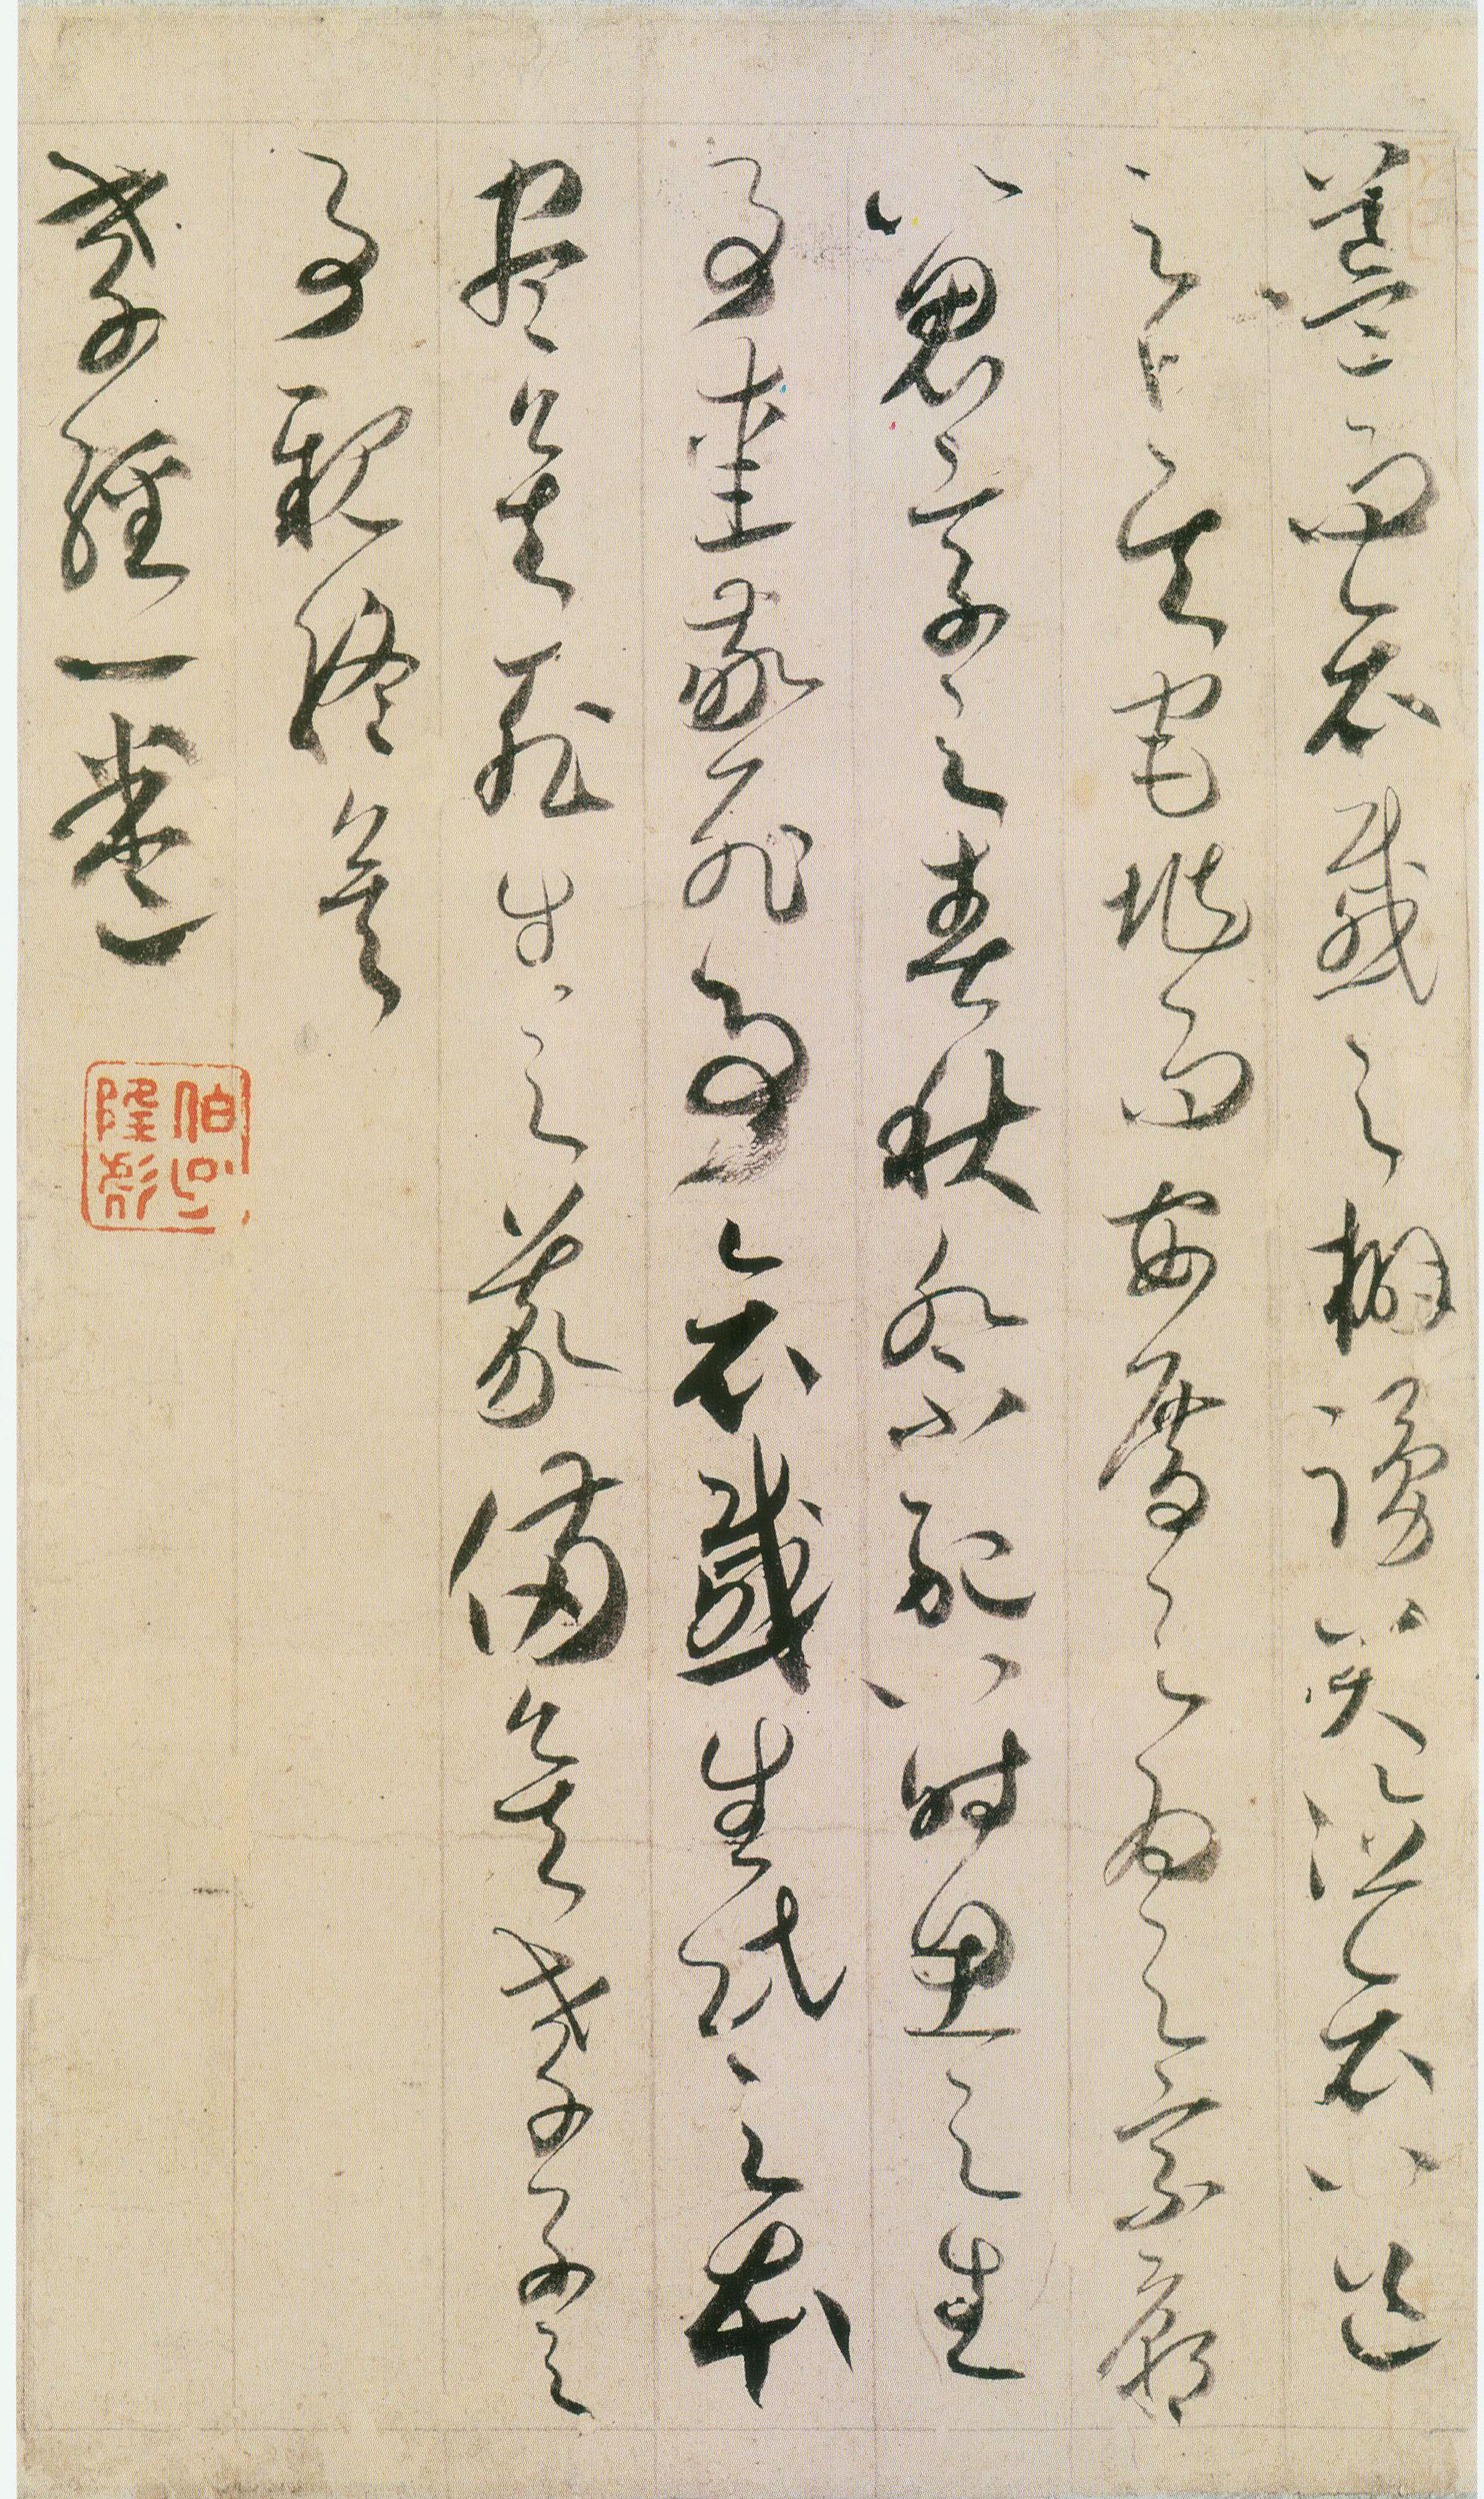 簋而哀慼之擗踴哭泣哀以送
之卜其宅垗而安厝之為之宗廟
以鬼享之春秋祭祀以時思之生
事愛敬死事哀慼生民之本
盡矣死生之義備矣孝子之
事親終矣
孝經一卷